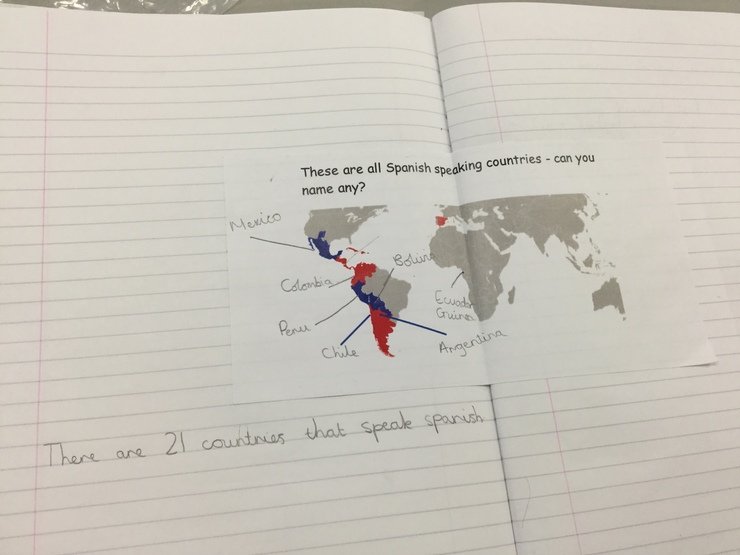 These are all Spanish speaking countries - can you
name any?
Mexico
Colombia
Peru
Chile
Ecuador
Guinea
Argentina
There are 21 countries that speak spanish